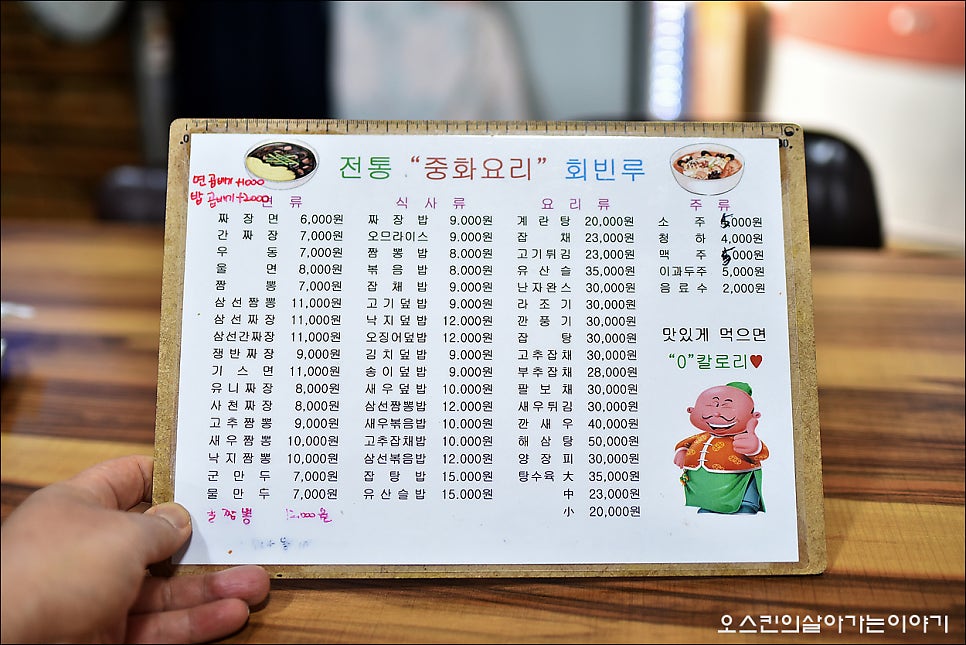 전통 “중화요리” 회빈루
면곱빼기 +1000
밥 곱빼기 +2000
면 류
짜장면 6,000원
간짜장 7,000원
우동 7,000원
울면 8,000원
짬뽕 7,000원
삼선짬뽕 11,000원
삼선짜장 11,000원
삼선간짜장 11,000원
쟁반짜장 9,000원
기스면 11,000원
유니짜장 8,000원
사천짜장 8,000원
고추짬뽕 9,000원
새우짬뽕 10,000원
낙지짬뽕 10,000원
군만두 7,000원
물만두 7,000원
굴짬뽕 12,000원
식 사 류
짜장밥 9.000원
오므라이스 9.000원
짬뽕밥 8.000원
볶음밥 8.000원
잡채밥 9.000원
고기덮밥 9.000원
낙지덮밥 12.000원
오징어덮밥 12.000원
김치덮밥 9.000원
송이덮밥 9.000원
새우덮밥 10.000원
삼선짬뽕밥 12.000원
새우볶음밥 10.000원
고추잡채밥 10.000원
삼선볶음밥 12.000원
잡탕밥 15.000원
유산슬밥 15.000원
요 리 류
계란탕 20,000원
잡채 23,000원
고기튀김 23,000원
유산슬 35,000원
난자완스 30,000원
라조기 30,000원
깐풍기 30,000원
잡탕 30,000원
고추잡채 30,000원
부추잡채 28,000원
팔보채 30,000원
새우튀김 30,000원
깐새우 40,000원
해삼탕 50,000원
양장피 30,000원
탕수육 大 35,000원
中 23,000원
小 20,000원
주 류
소주 5,000원
청하 4,000원
맥주 5,000원
이과두주 5,000원
음료수 2,000원
맛있게 먹으면
“0”칼로리♥
오스킨의살아가는이야기